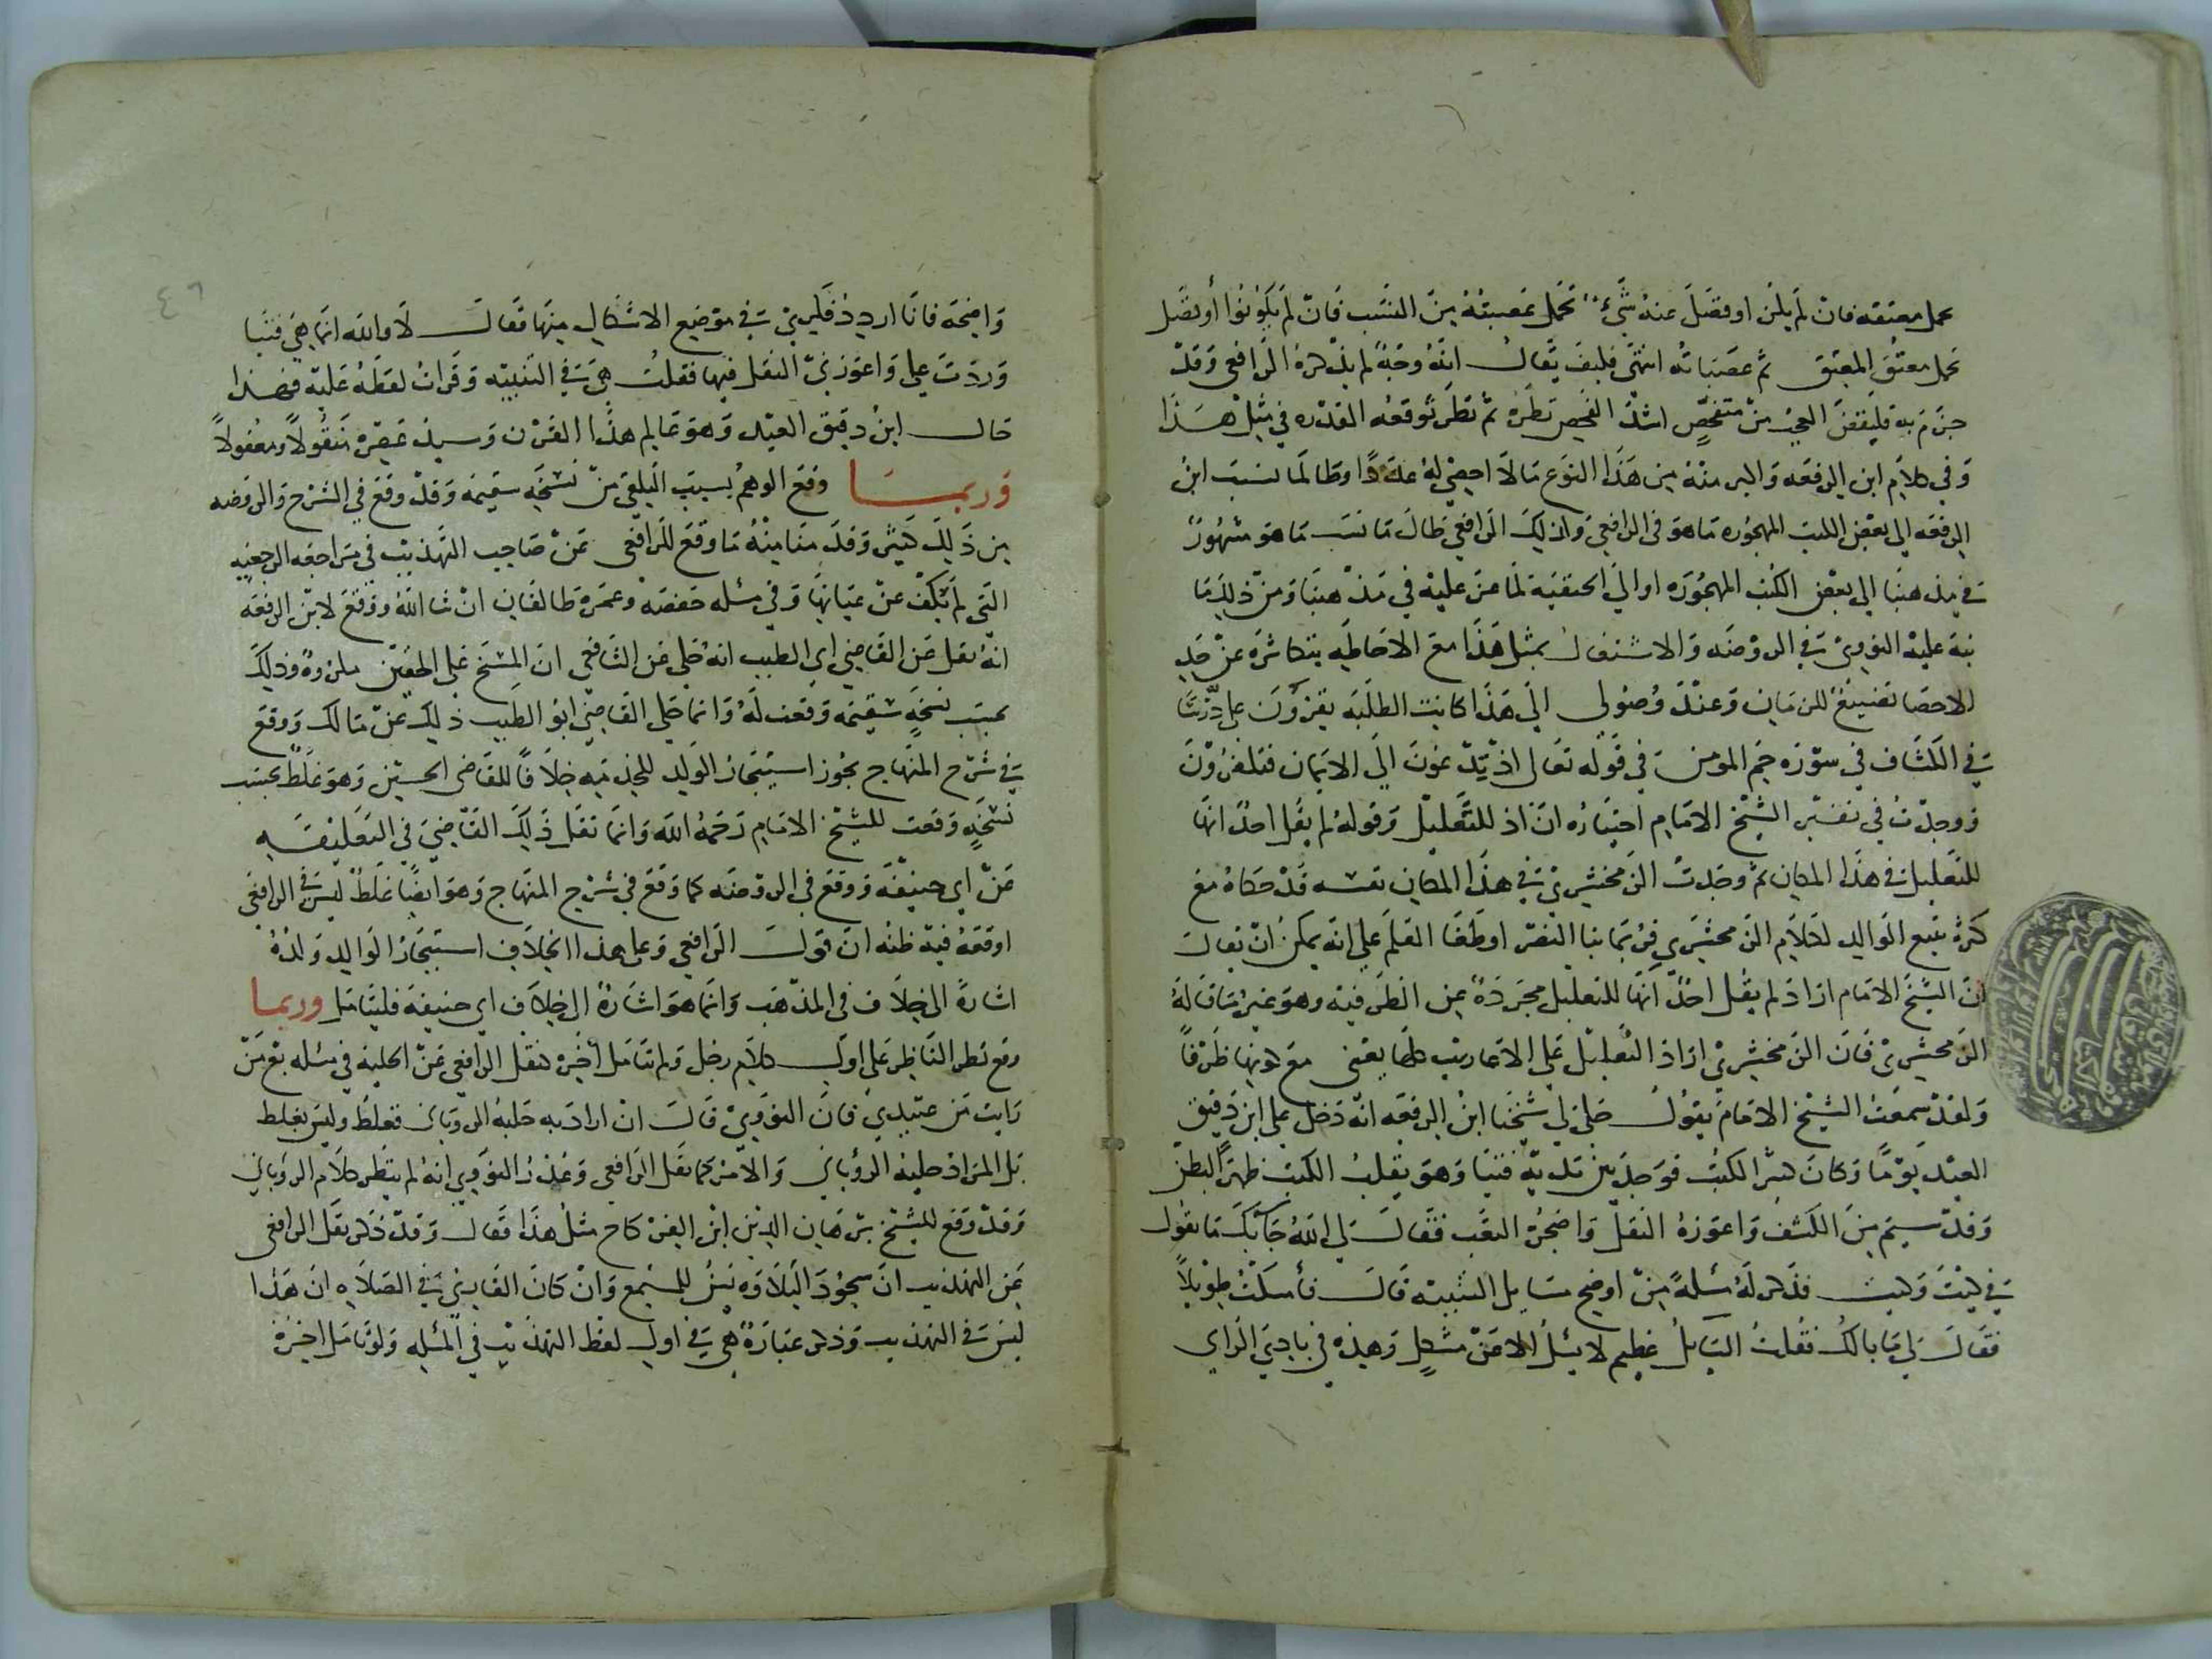 تحمل معتقه فان لم يكن او فضل عنه شيء تحمل عصبته من النسب فان لم يكونوا أو فضل
تحمل معتق المعتق ثم عصباته انتهى فكيف يقال انه وجه لم يذكره الرافعي وقد
جزم به فليقض العجب من متفحص اشتد الفحص نظره ثم نظر توقعه القدره في مثل هذا
وفي كلام ابن الرفعه واكبر منه من هذا النوع ما لا احصي له عددا وطالما نسب ابن
الرفعه الى بعض الكتب المهجوره ما هو في الرافعي وكذلك الرافعي طال ما نسب ما هو مشهور
في مذهبنا الى بعض الكتب المهجوره او الى الحنفيه لما عز عليه في مذهبنا ومن ذلك ما
نبه عليه النووي في الروضه والاشتغال بمثل هذا مع الاحاطه بتكاثره عن حد
الاحصا تضييع للزمان وعند وصولي الى هذا كانت الطلبه يقرؤون على درسا
في الكشاف في سورة حم المومن في قوله تعالى اذ تدعون الى الايمان فتكفرون
ووجدت في تفسير الشيخ الامام اختياره ان اذ للتعليل وقوله لم يقل احد انها
للتعليل في هذا المكان ثم وجدت الزمخشري في هذا المكان نفسه قد حكاه مع
كثرة تتبع الوالد لكلام الزمخشري فربما نبا البصر او طغا القلم على انه يمكن ان يقال
ان الشيخ الامام اراد لم يقل احد انها للتعليل مجردة عن الظرفيه وهو غير ما قاله
الزمخشري فان الزمخشري اراد التعليل على الاعاريب كلها يعني مع كونها ظرفا
ولقد سمعت الشيخ الامام يقول حكى لي شيخنا ابن الرفعه انه دخل على ابن دقيق
العيد يوما وكان كثير الكتب فوجد بين يديه فتيا وهو يقلب الكتب ظهرا لبطن
وقد سيم من الكشف واعوزه النقل واضجره التعب فقال لي الله جابك ما تقول
في كيت وكيت فذكر له مسئلة من اوضح مسايل التنبيه قال فأسكت طويلا
فقال لي ما بالك فقلت السايل عظيم لا يسئل الا عن مشكل وهذه في بادي الراي
٤٦
واضحة فانا اردد فكري في موضع الاشكال منها فقال لا والله انما هي فتيا
وردت علي واعوزني النقل فيها فقلت هي في التنبيه وقرات لفظه عليه فهذا
حال ابن دقيق العيد وهو عالم هذا القرن وسيد عصره منقولا ومعقولا
وربما وقع الوهم بسبب التلقي من نسخه سقيمه وقد وقع في الشرح والروضه
من ذلك كثير وقد منا منه ما وقع للرافعي عن صاحب التهذيب في مراجعه الرجعيه
التي لم تكف عن عيانها وفي مسئله حفصه وعمره طالقان ان شا الله ووقع لابن الرفعه
انه نقل عن القاضي ابي الطيب انه حكى عن الشافعي ان المسح على الخفين مكروه وذلك
بحسب نسخه سقيمه وقعت له وانما حكى القاضي ابو الطيب ذلك عن مالك ووقع
في شرح المنهاج يجوز استيجار الولد للخدمه خلافا للقاضي الحسين وهو غلط بحسب
نسخة وقعت للشيخ الامام رحمه الله وانما نقل ذلك القاضي في التعليقه
عن ابي حنيفه ووقع في الروضه كما وقع في شرح المنهاج وهو ايضا غلط ليس في الرافعي
اوقعه فيه ظنه ان قول الرافعي وعلى هذا الخلاف استيجار الوالد ولده
اشارة الى خلاف في المذهب وانما هو اشارة الى خلاف ابي حنيفه فليتامل وربما
وقع نظر الناظر على اول كلام رجل ولم يتامل أخره كنقل الرافعي عن الحليه في مسئله بع من
رايت من عبيدي فان النووي قال ان اراد به حلية الروياني فغلط وليس بغلط
بل المراد حليه الروياني والامر كما نقل الرافعي وعذر النووي انه لم ينظر كلام الروياني
وقد وقع للشيخ برهان الدين ابن الفركاح مثل هذا فقال وقد ذكر نقل الرافعي
عن التهذيب ان سجود التلاوه يسن للمستمع وان كان القاري في الصلاه ان هذا
ليس في التهذيب وذكر عبارة هي في اول لفظ التهذيب في المسئله ولو تامل اخره